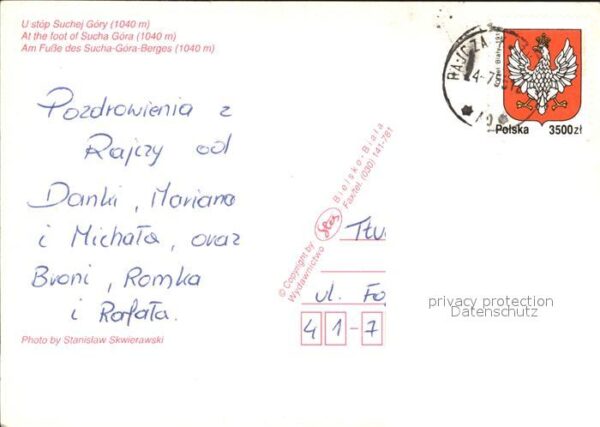 U stóp Suchej Góry (1040 m)
At the foot of Sucha Góra (1040 m)
Am Fuße des Sucha-Góra-Berges (1040 m)
Pozdrowienia z
Rajczy od
Danki, Mariana
i Michała, oraz
Broni, Romka
i Rafała.
Photo by Stanisław Skwierawski
© Copyright by
Wydawnictwo
Bielsko-Biała
Fax/tel. (030) 141-781
RAJCZA
Polska 3500zł
ul.
41-7
privacy protection
Datenschutz